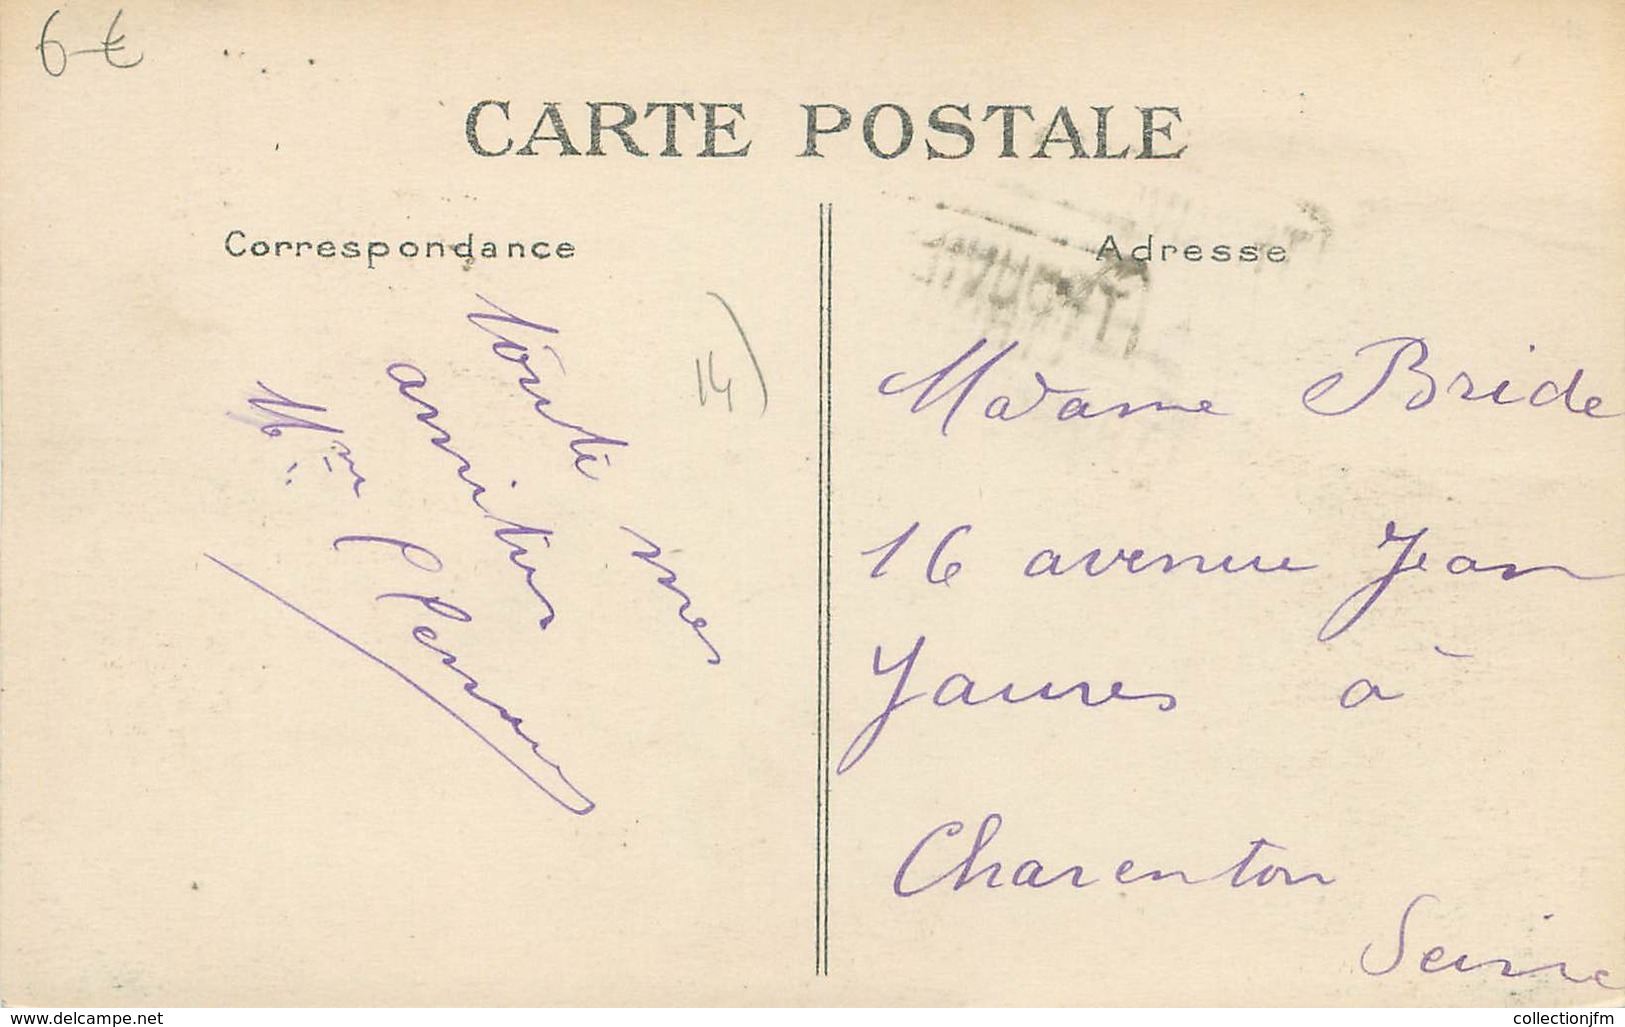 6 €
CARTE POSTALE
Correspondance
Adresse
14)
Toute mes
amities
Mme
Madame Bride
16 avenue Jean
Jaures à
Charenton
Seine
www.delcampe.net
collectionjfm